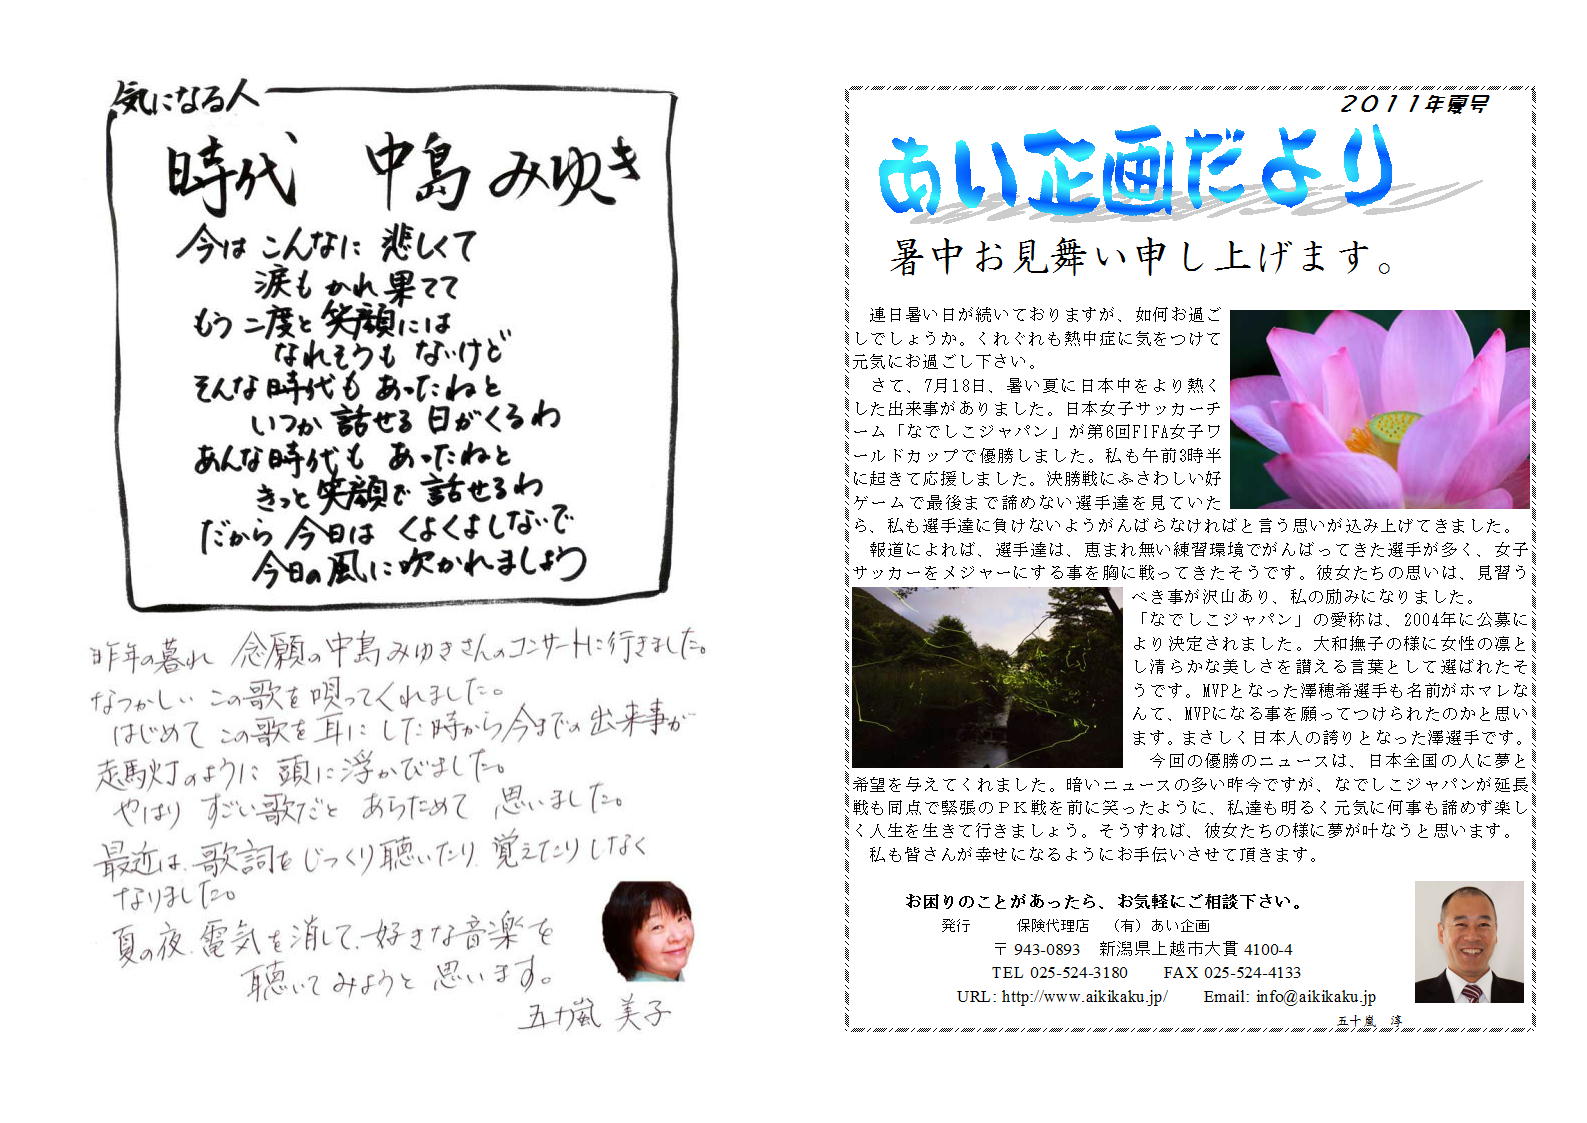 気になる人
時代　中島みゆき
今は こんなに 悲しくて
涙も かれ果てて
もう二度と 笑顔には
なれそうも ないけど
そんな時代も あったねと
いつか 話せる 日がくるわ
あんな時代も あったねと
きっと 笑顔で 話せるわ
だから 今日は くよくよしないで
今日の風に吹かれましょう
昨年の暮れ 念願の中島みゆきさんのコンサートに行きました。
なつかしい この歌を唄ってくれました。
はじめて この歌を耳に した時から今までの出来事が
走馬灯のように 頭に浮かびました。
やはり すごい歌だと あらためて 思いました。
最近は、歌詞をじっくり聴いたり、覚えたりしなく
なりました。
夏の夜、電気を消して、好きな音楽を
聴いてみようと 思います。
五十嵐 美子
２０１１年夏号
あい企画だより
暑中お見舞い申し上げます。
連日暑い日が続いておりますが、如何お過ご
しでしょうか。くれぐれも熱中症に気をつけて
元気にお過ごし下さい。
さて、7月18日、暑い夏に日本中をより熱く
した出来事がありました。日本女子サッカーチ
ーム「なでしこジャパン」が第6回FIFA女子ワ
ールドカップで優勝しました。私も午前3時半
に起きて応援しました。決勝戦にふさわしい好
ゲームで最後まで諦めない選手達を見ていた
ら、私も選手達に負けないようがんばらなければと言う思いが込み上げてきました。
報道によれば、選手達は、恵まれ無い練習環境でがんばってきた選手が多く、女子
サッカーをメジャーにする事を胸に戦ってきたそうです。彼女たちの思いは、見習う
べき事が沢山あり、私の励みになりました。
「なでしこジャパン」の愛称は、2004年に公募に
より決定されました。大和撫子の様に女性の凛と
し清らかな美しさを讃える言葉として選ばれたそ
うです。MVPとなった澤穂希選手も名前がホマレな
んて、MVPになる事を願ってつけられたのかと思い
ます。まさしく日本人の誇りとなった澤選手です。
今回の優勝のニュースは、日本全国の人に夢と
希望を与えてくれました。暗いニュースの多い昨今ですが、なでしこジャパンが延長
戦も同点で緊張のＰＫ戦を前に笑ったように、私達も明るく元気に何事も諦めず楽し
く人生を生きて行きましょう。そうすれば、彼女たちの様に夢が叶なうと思います。
私も皆さんが幸せになるようにお手伝いさせて頂きます。
お困りのことがあったら、お気軽にご相談下さい。
発行　　保険代理店　（有）あい企画
〒943-0893　新潟県上越市大貫 4100-4
TEL 025-524-3180　　FAX 025-524-4133
URL: http://www.aikikaku.jp/　　Email: info@aikikaku.jp
五十嵐　淳